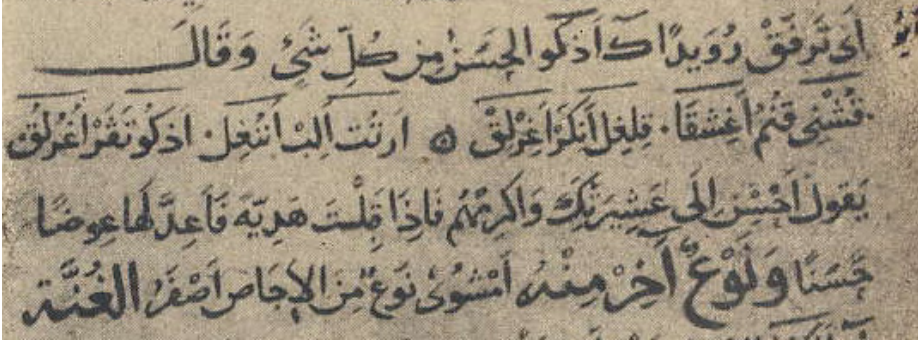 اَىْ تَرَفَّقْ رُوَيدًا كَ اَذكو الحَسَنُ مِن كُلِّ شَئٍ وَقَالَ
قُشْنى قُنُمْ اَغِشقَا · قِلغِل اَنكَرْ اَغِرْلِقْ ۞ اَرتُت اَلِبْ اَنُنْغِل · اَذكو تَفَرْ اُغُرلُقْ
يَقول اَحْسِنْ اِلَى عَشِيرَتِكَ وَاكرِمْهُمْ فَاِذَا قَبِلْتَ هَدِيّه فَاَعِدَّ لَهَا عِوَضًا
حَسَنًا وَنَوْعٌ آخَرُ مِنْهُ اَمْشوُىْ نَوعٌ مِنَ الاِجَاصِ اَصْفَرُ الغُنَّة